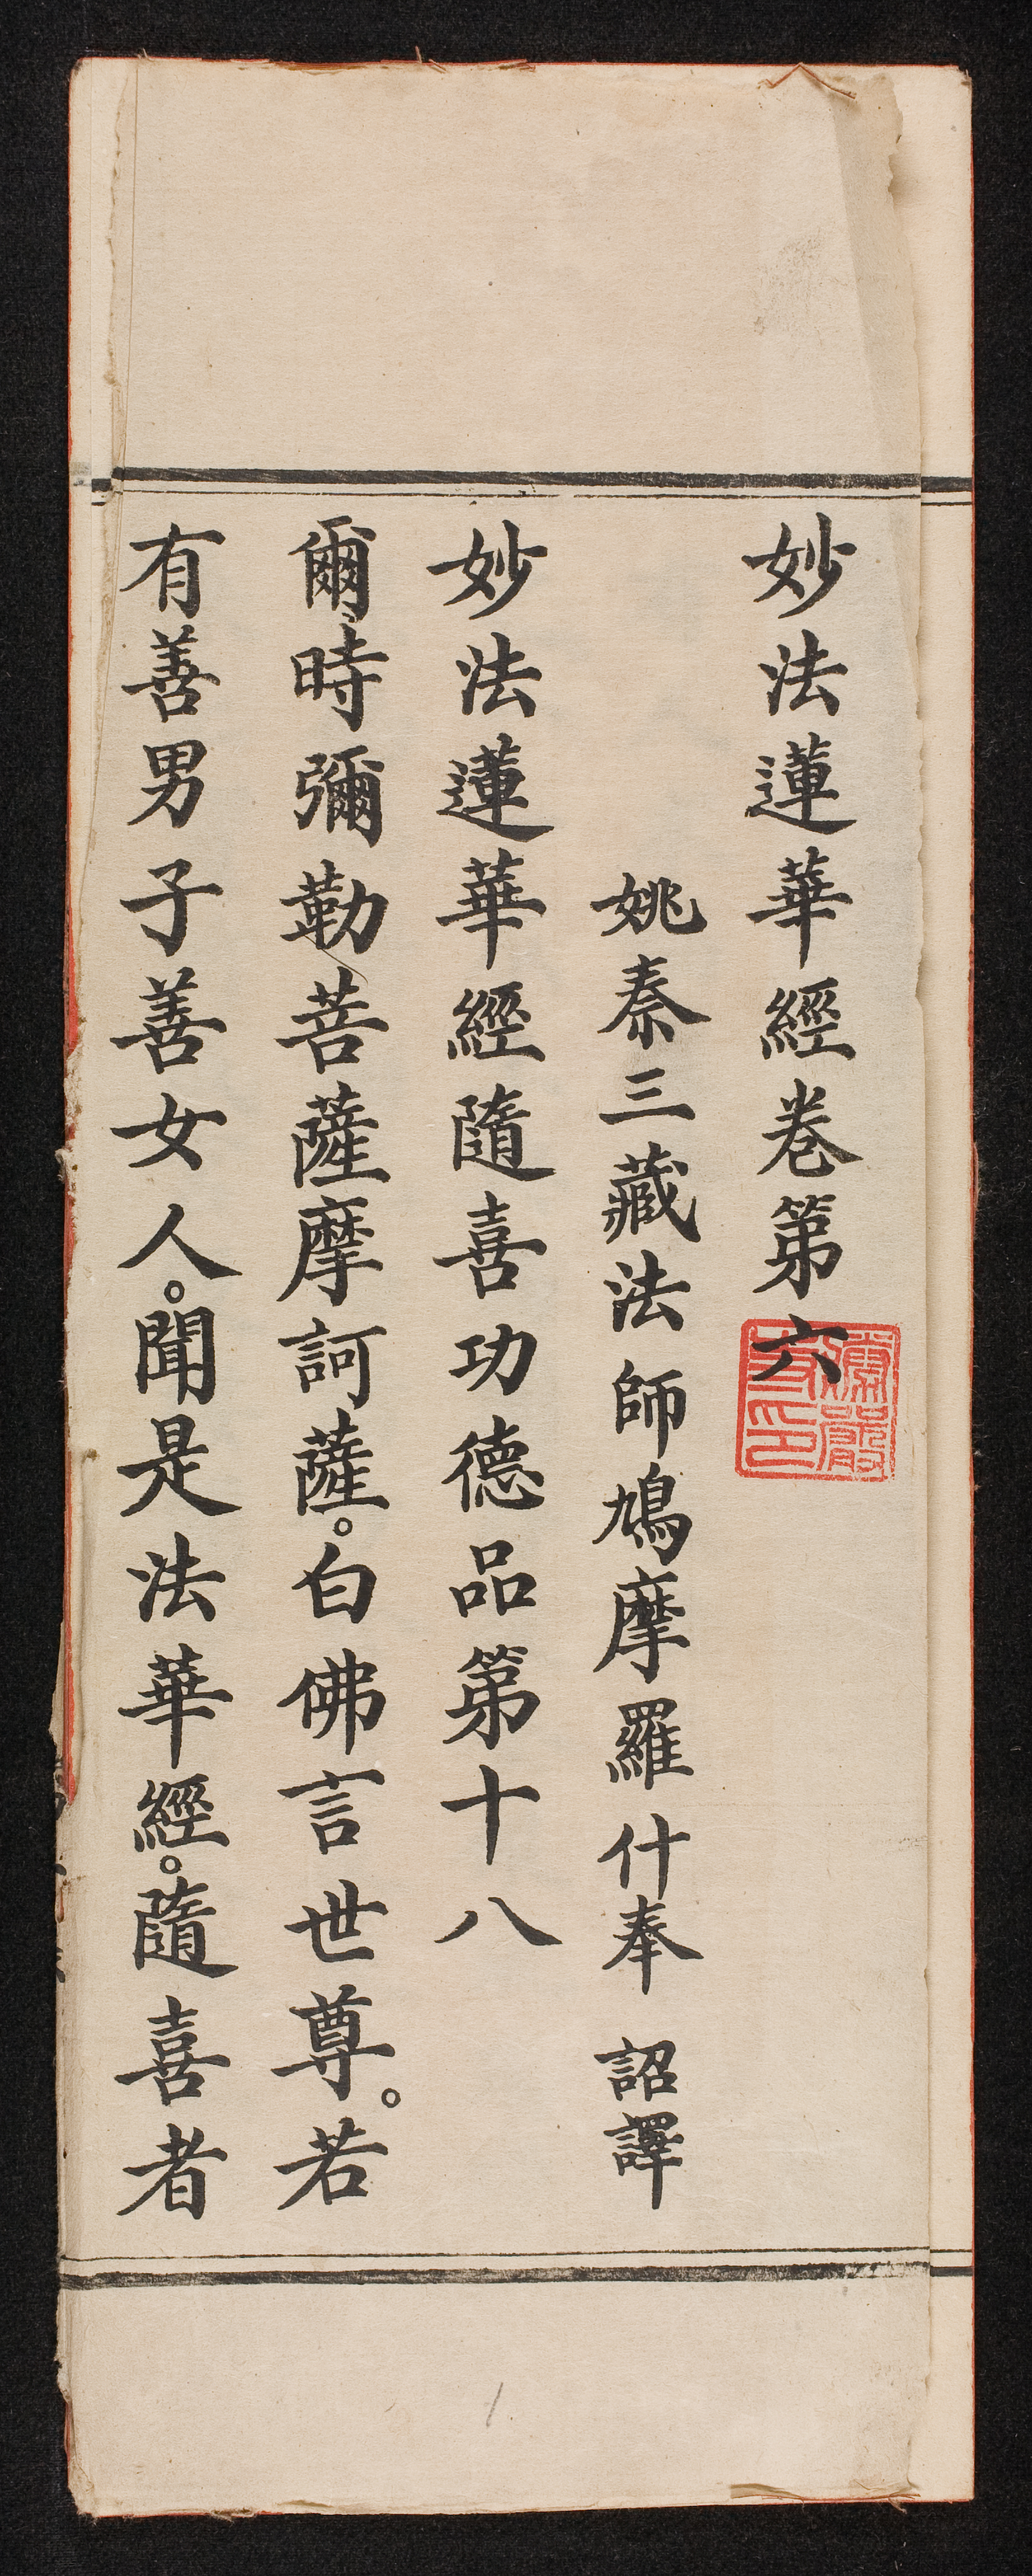 妙法蓮華經卷第六
姚秦三藏法師鳩摩羅什奉 詔譯
妙法蓮華經隨喜功德品第十八
爾時彌勒菩薩摩訶薩。白佛言世尊。若
有善男子善女人。聞是法華經。隨喜者
1